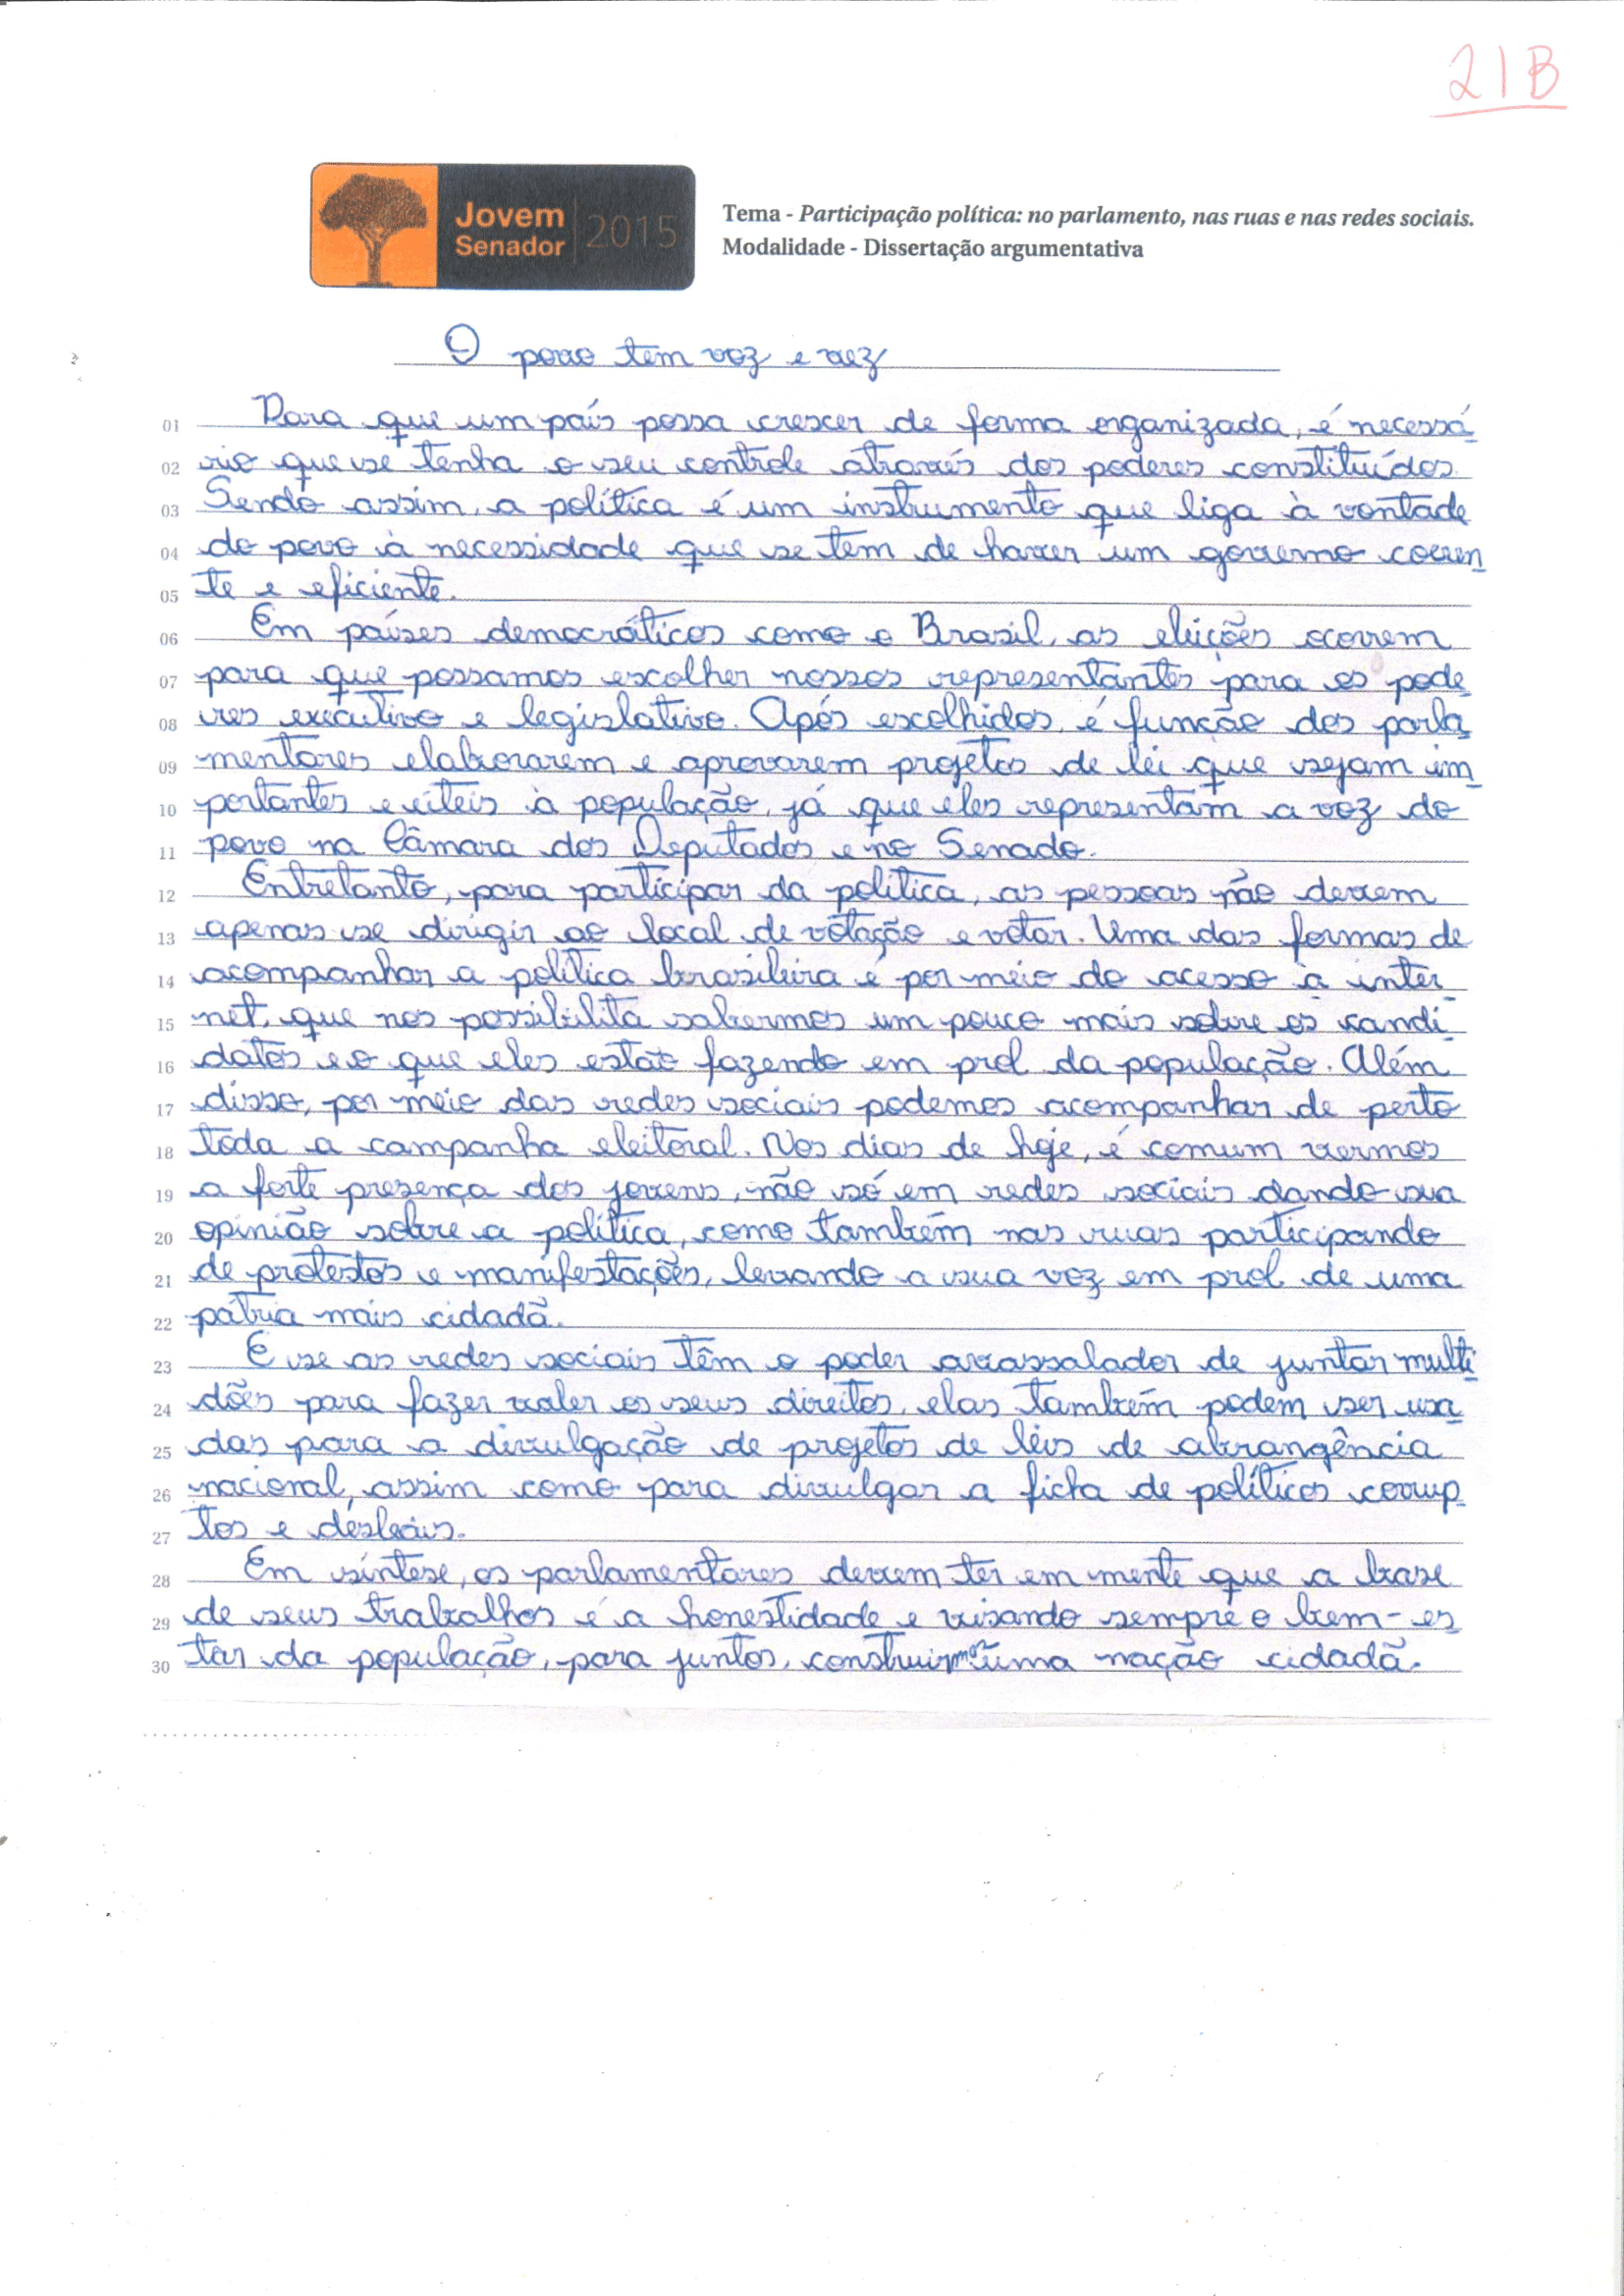 21B
Jovem
Senador
2015
Tema - Participação política: no parlamento, nas ruas e nas redes sociais.
Modalidade - Dissertação argumentativa
O povo tem voz e vez
01 Para que um país possa crescer de forma organizada, é necessá
02 rio que se tenha o seu controle através dos poderes constituídos.
03 Sendo assim, a política é um instrumento que liga à vontade
04 do povo à necessidade que se tem de haver um governo coeren
05 te e eficiente.
06 Em países democráticos como o Brasil, as eleições ocorrem
07 para que possamos escolher nossos representantes para os pode
08 res executivo e legislativo. Após escolhidos, é função dos parla
09 mentares elaborarem e aprovarem projetos de lei que sejam im
10 portantes e úteis à população, já que eles representam a voz do
11 povo na Câmara dos Deputados e no Senado.
12 Entretanto, para participar da política, as pessoas não devem
13 apenas se dirigir ao local de votação e votar. Uma das formas de
14 acompanhar a política brasileira é por meio do acesso à inter
15 net, que nos possibilita sabermos um pouco mais sobre os candi
16 datos e o que eles estão fazendo em prol da população. Além
17 disso, por meio das redes sociais podemos acompanhar de perto
18 toda a campanha eleitoral. Nos dias de hoje, é comum vermos
19 a forte presença dos jovens, não só em redes sociais dando sua
20 opinião sobre a política, como também nas ruas participando
21 de protestos e manifestações, levando a sua voz em prol de uma
22 pátria mais cidadã.
23 E se as redes sociais têm o poder avassalador de juntar multi
24 dões para fazer valer os seus direitos, elas também podem ser usa
25 das para a divulgação de projetos de leis de abrangência
26 nacional, assim como para divulgar a ficha de políticos corrup
27 tos e desleais.
28 Em síntese, os parlamentares devem ter em mente que a base
29 de seus trabalhos é a honestidade e visando sempre o bem-es
30 tar da população, para juntos, construirmos uma nação cidadã.